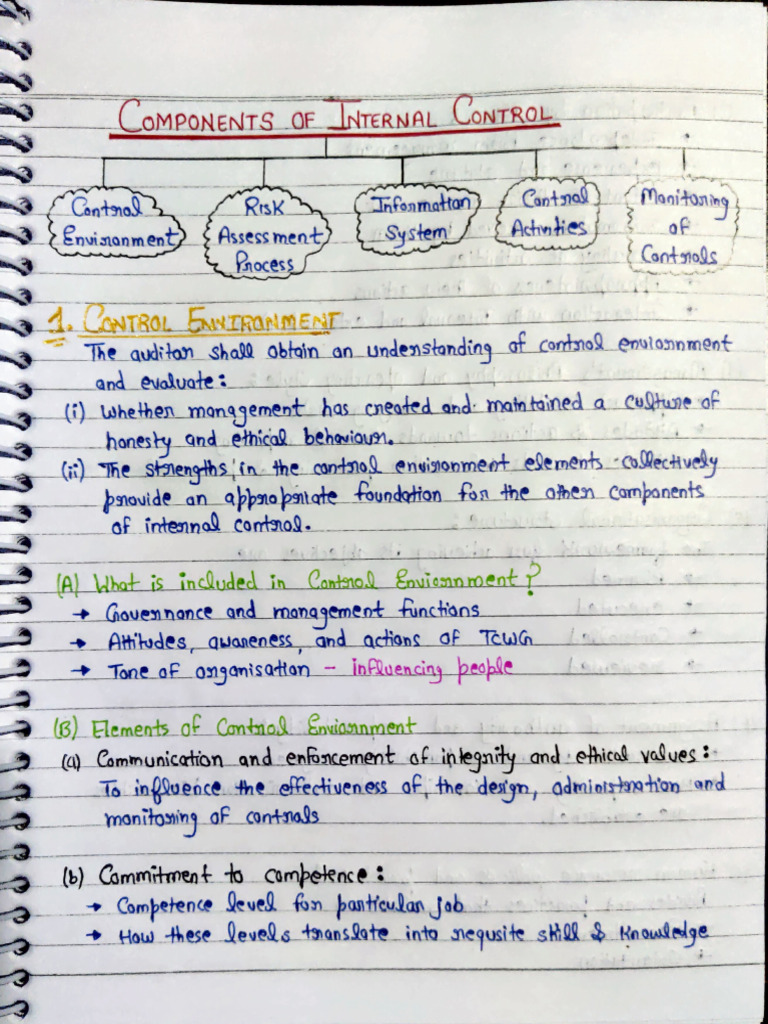 COMPONENTS OF INTERNAL CONTROL
Control Environment
Risk Assessment Process
Information System
Control Activities
Monitoring of Controls
1. CONTROL ENVIRONMENT
The auditor shall obtain an understanding of control enviornment
and evaluate:
(i) Whether management has created and maintained a culture of
honesty and ethical behaviour.
(ii) The strengths in the control environment elements collectively
provide an appropriate foundation for the other components
of internal control.
(A) What is included in Control Enviornment?
→ Governance and management functions
→ Attitudes, awareness, and actions of TCWG
→ Tone of organisation - influencing people
(B) Elements of Control Enviornment
(a) Communication and enforcement of integrity and ethical values:
To influence the effectiveness of the design, administration and
monitoring of controls
(b) Commitment to competence:
→ Competence level for particular job
→ How these levels translate into requsite skill & knowledge